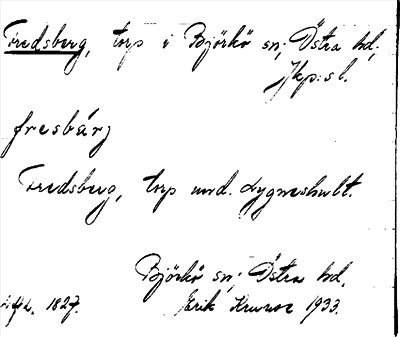 Fredsberg, torp i Björkö sn; Östra hd,
Jkp:s l.
fresbárj
Fredsberg, torp und. Lygneshult.
Björkö sn; Östra hd,
1827. Erik 1933.